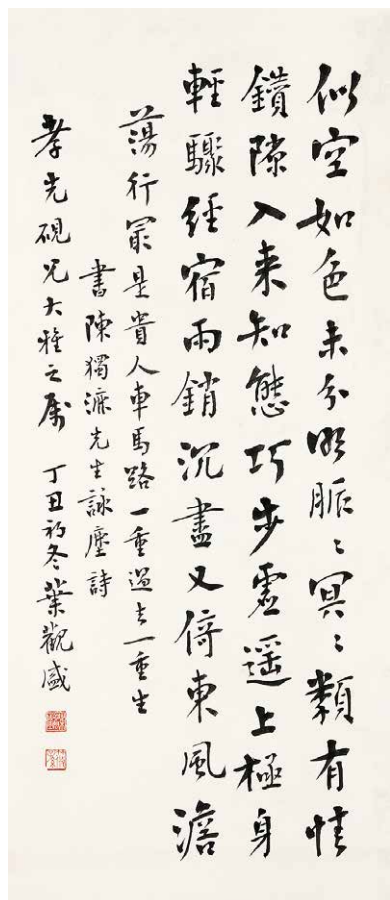 似空如色未分明脈〻冥〻類有情
鑽隙入来知態巧步虛遥上極身
輕驟經宿雨銷沉盡又倚東風澹
蕩行最是貴人車馬路一重過去一重生
書陳獨漉先生詠塵詩
孝先硯兄大雅之属 丁丑初冬葉觀盛